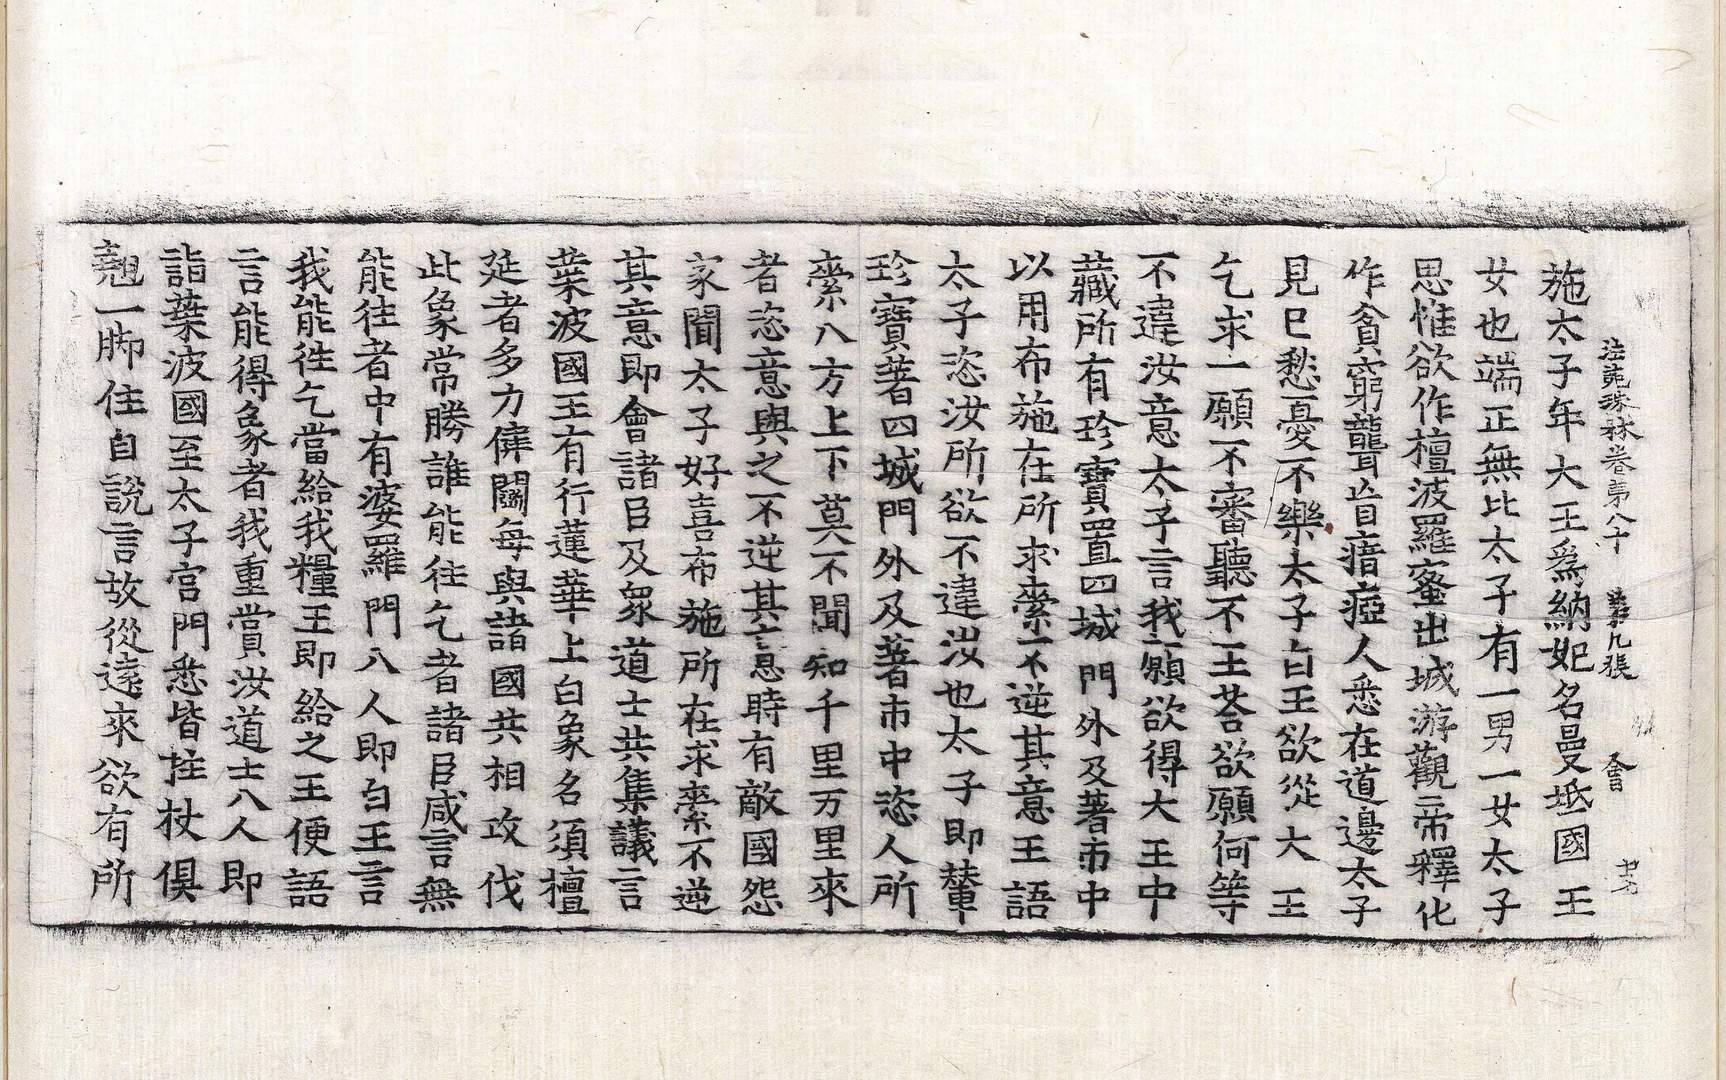 法苑珠林卷第八十 第九張 會
施太子年大王爲納妃名曼坻國王
女也端正無比太子有一男一女太子
思惟欲作檀波羅蜜出城游觀帝釋化
作貧窮聾盲瘖瘂人悉在道邊太子
見已愁憂不樂太子白王欲從大王
乞求一願不審聽不王荅欲願何等
不違汝意太子言我願欲得大王中
藏所有珍寶置四城門外及著市中
以用布施在所求索不逆其意王語
太子恣汝所欲不違汝也太子即輦
珍寶著四城門外及著市中恣人所
索八方上下莫不聞知千里万里來
者恣意與之不逆其意時有敵國怨
家聞太子好喜布施所在求索不逆
其意即會諸臣及衆道士共集議言
葉波國王有行蓮華上白象名須檀
延者多力健鬪每與諸國共相攻伐
此象常勝誰能往乞者諸臣咸言無
能往者中有婆羅門八人即白王言
我能往乞當給我糧王即給之王便語
言能得象者我重賞汝道士八人即
詣葉波國至太子宮門悉皆拄杖俱
翹一脚住自說言故從遠來欲有所